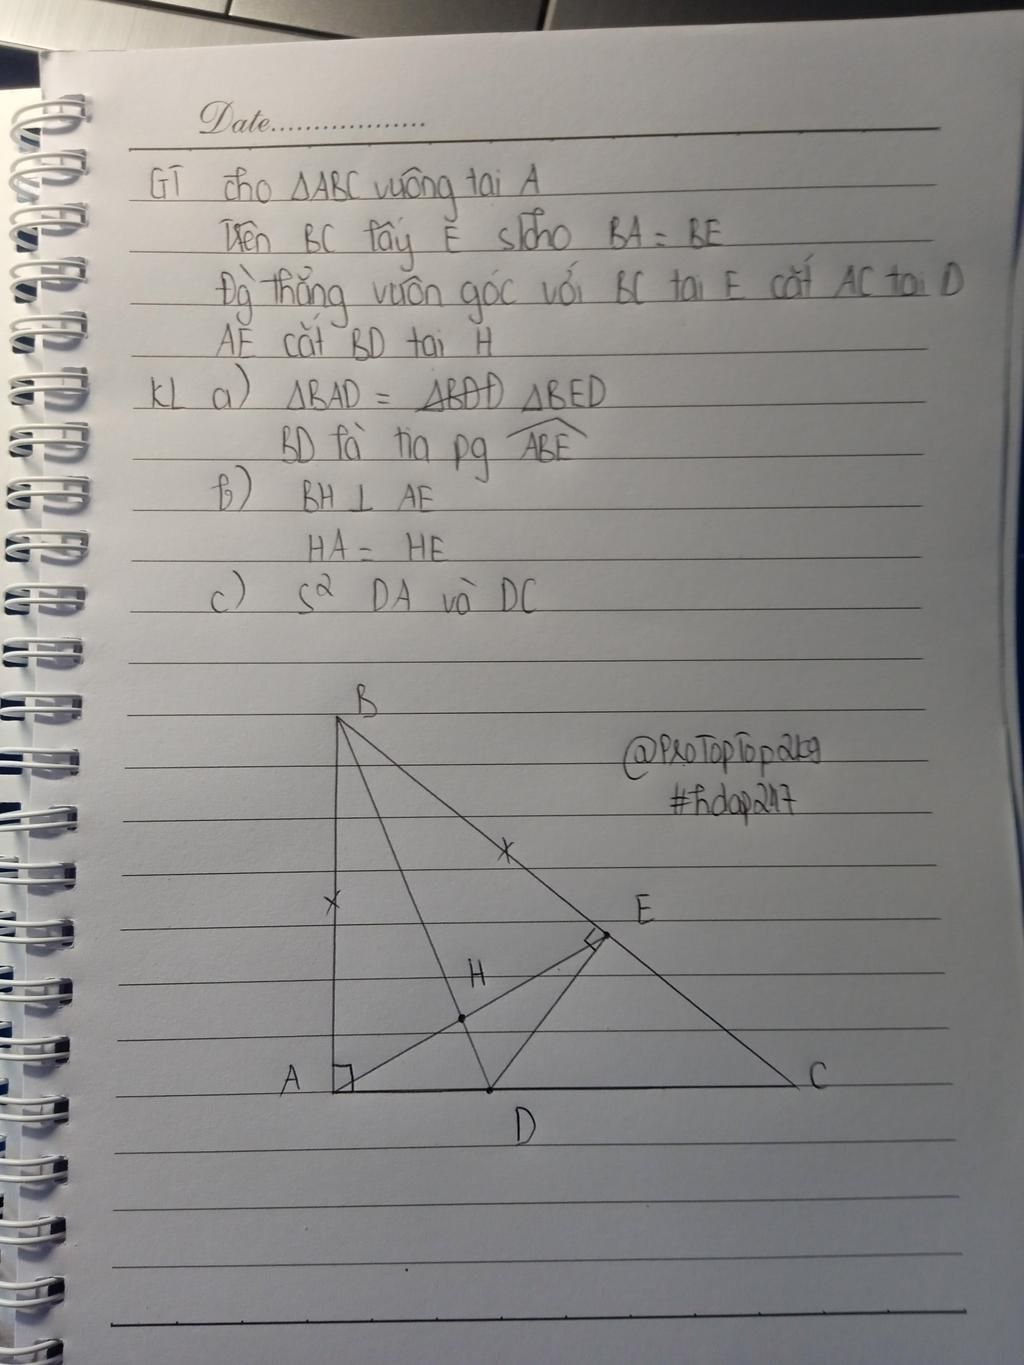 Date..................
GT cho ΔABC vuông tại A
Trên BC lấy E s/cho BA = BE
Đg thẳng vuôn góc với BC tại E cắt AC tại D
AE cắt BD tại H
KL a) ΔBAD = ΔBED
BD là tia pg ABE
b) BH ⊥ AE
HA = HE
c) S² DA và DC
B
@ProTopTop2kg
#hdap247
E
H
A
C
D